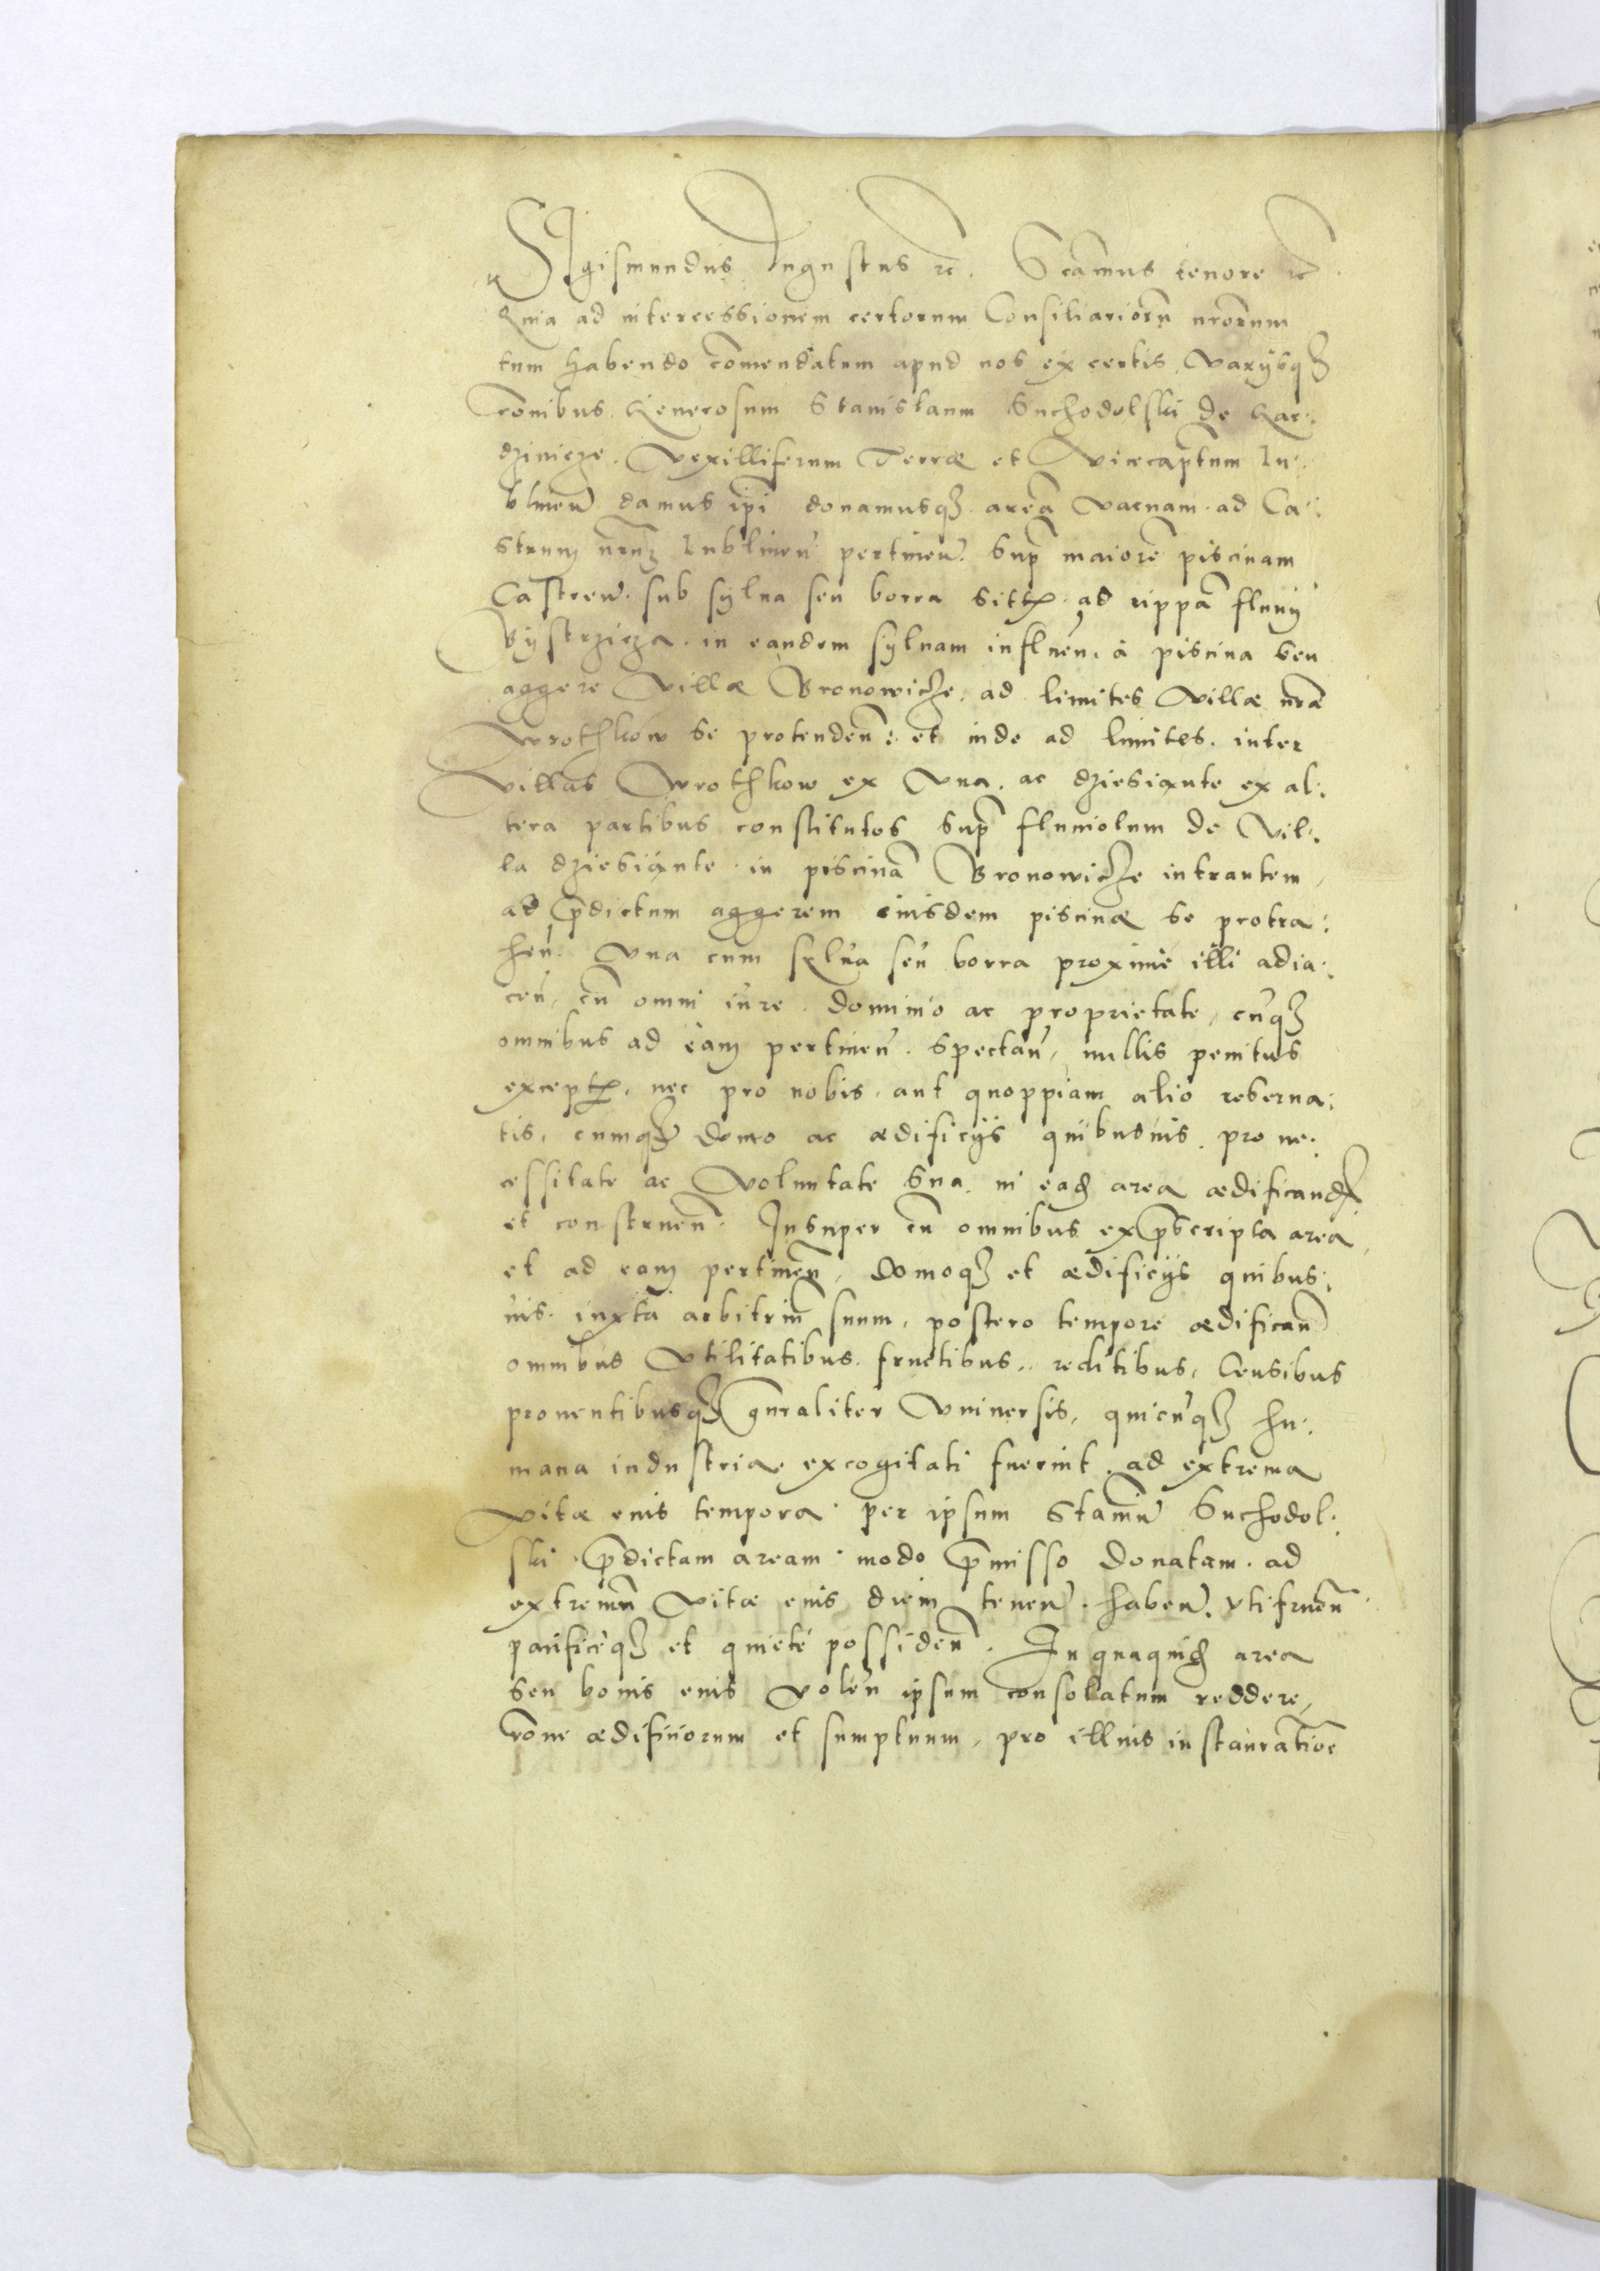 SIgismundus Augustus rc. Scamus tenore rc
Quia ad intercessionem certorum Consiliarioru nrorum
tum habendo comendatum apud nos ex certis, varijsq
ronibus Generosum Stanislaum Suchodolski de
dzinicze. Vexilliferum Terræ et Vicecaptum Lu:
blinen damus ipi donamusq area vacuam ad Ca:
strum nrum Lublinen pertinen. Sup maiore piscinam
Castren. sub sylua seu borra sitt ad rippa fluuij
Bystrzicza. in eandem syluam influen. à piscina seu
aggere Villæ Bronowicze. ad limites Villæ nra
Wrothkow se protenden: et inde ad limites. inter
villas Wrothkow ex vna. ac dziesiąnte ex al:
tera partibus constitutos sup fluuiolum de Vil:
la dziesiąnte in piscina Bronowicze intrantem,
ad pdictum aggerem eiusdem piscinæ se protra:
hen. vna cum sylua seu borra proxime illi adia:
cen, cu omni iure. dominio ac proprietate, cuq
omnibus ad eam pertinen. spectan, nullis penitus
except, nec pro nobis, aut quoppiam alio reserua:
tis, cumq domo ac ædificijs quibusuis. pro ne:
cessitate ac voluntate sua. in ead area ædificand
et construen. Insuper cu omnibus ex pscripta area
et ad eam pertinen, domoq et ædificijs quibus:
uis. iuxta arbitriu suum, postero tempore ædifican
omnibus vtilitatibus. fructibus, reditibus, Censibus
prouentibusq gnraliter vniuersis, quicuq hu:
mana industria excogitati fuerint. ad extrema
vitæ eius tempora per ipsum Stanisu Suchodol:
ski pdictam aream modo pmisso donatam. ad
extremu vitæ eius diem tenen. haben. vtifruen
pacificeq et quiete possiden. In quaquid area
seu bonis eius volen ipsum consolatum reddere,
rone ædificiorum et sumptuum, pro illius instauratioe